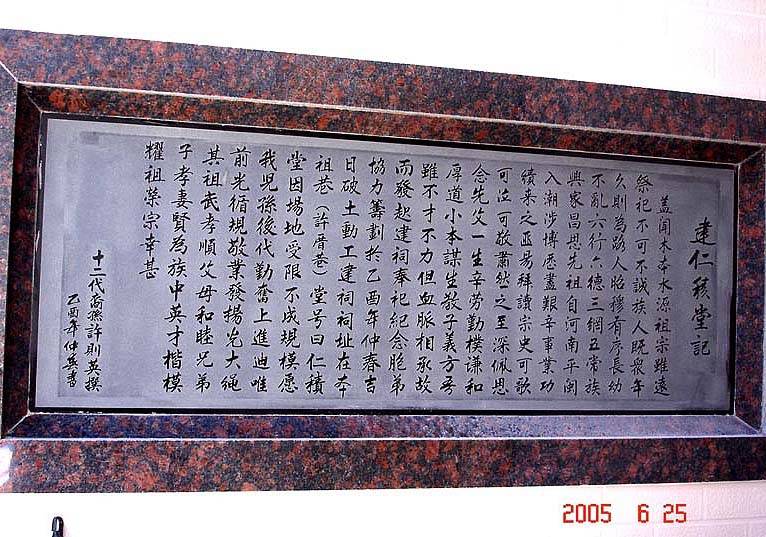 建仁積堂記
蓋聞木本水源祖宗雖遠
祭祀不可不誠族人既衆年
久則為路人昭穆有序長幼
不亂六行六德三綱五常族
興家昌思先祖自河南平閩
入潮涉博歷盡艱辛事業功
績來之匪易拜讀宗史可歌
可泣可敬肅然之至深佩思
念先父一生辛勞勤樸謙和
厚道小本謀生教子義方吾
雖不才不力但血脈相承故
而發起建祠奉祀紀念胞弟
協力籌劃於乙酉年仲春吉
日破土動工建祠祠址在本
祖巷（許厝巷）堂号曰仁積
堂因場地受限不成規模愿
我兒孫後代勤奮上進迪唯
前光循規敬業發揚光大繩
其祖武孝順父母和睦兄弟
子孝妻賢為族中英才楷模
耀祖榮宗幸甚
十二代裔孫許則英撰
乙酉年仲英書
2005 6 25